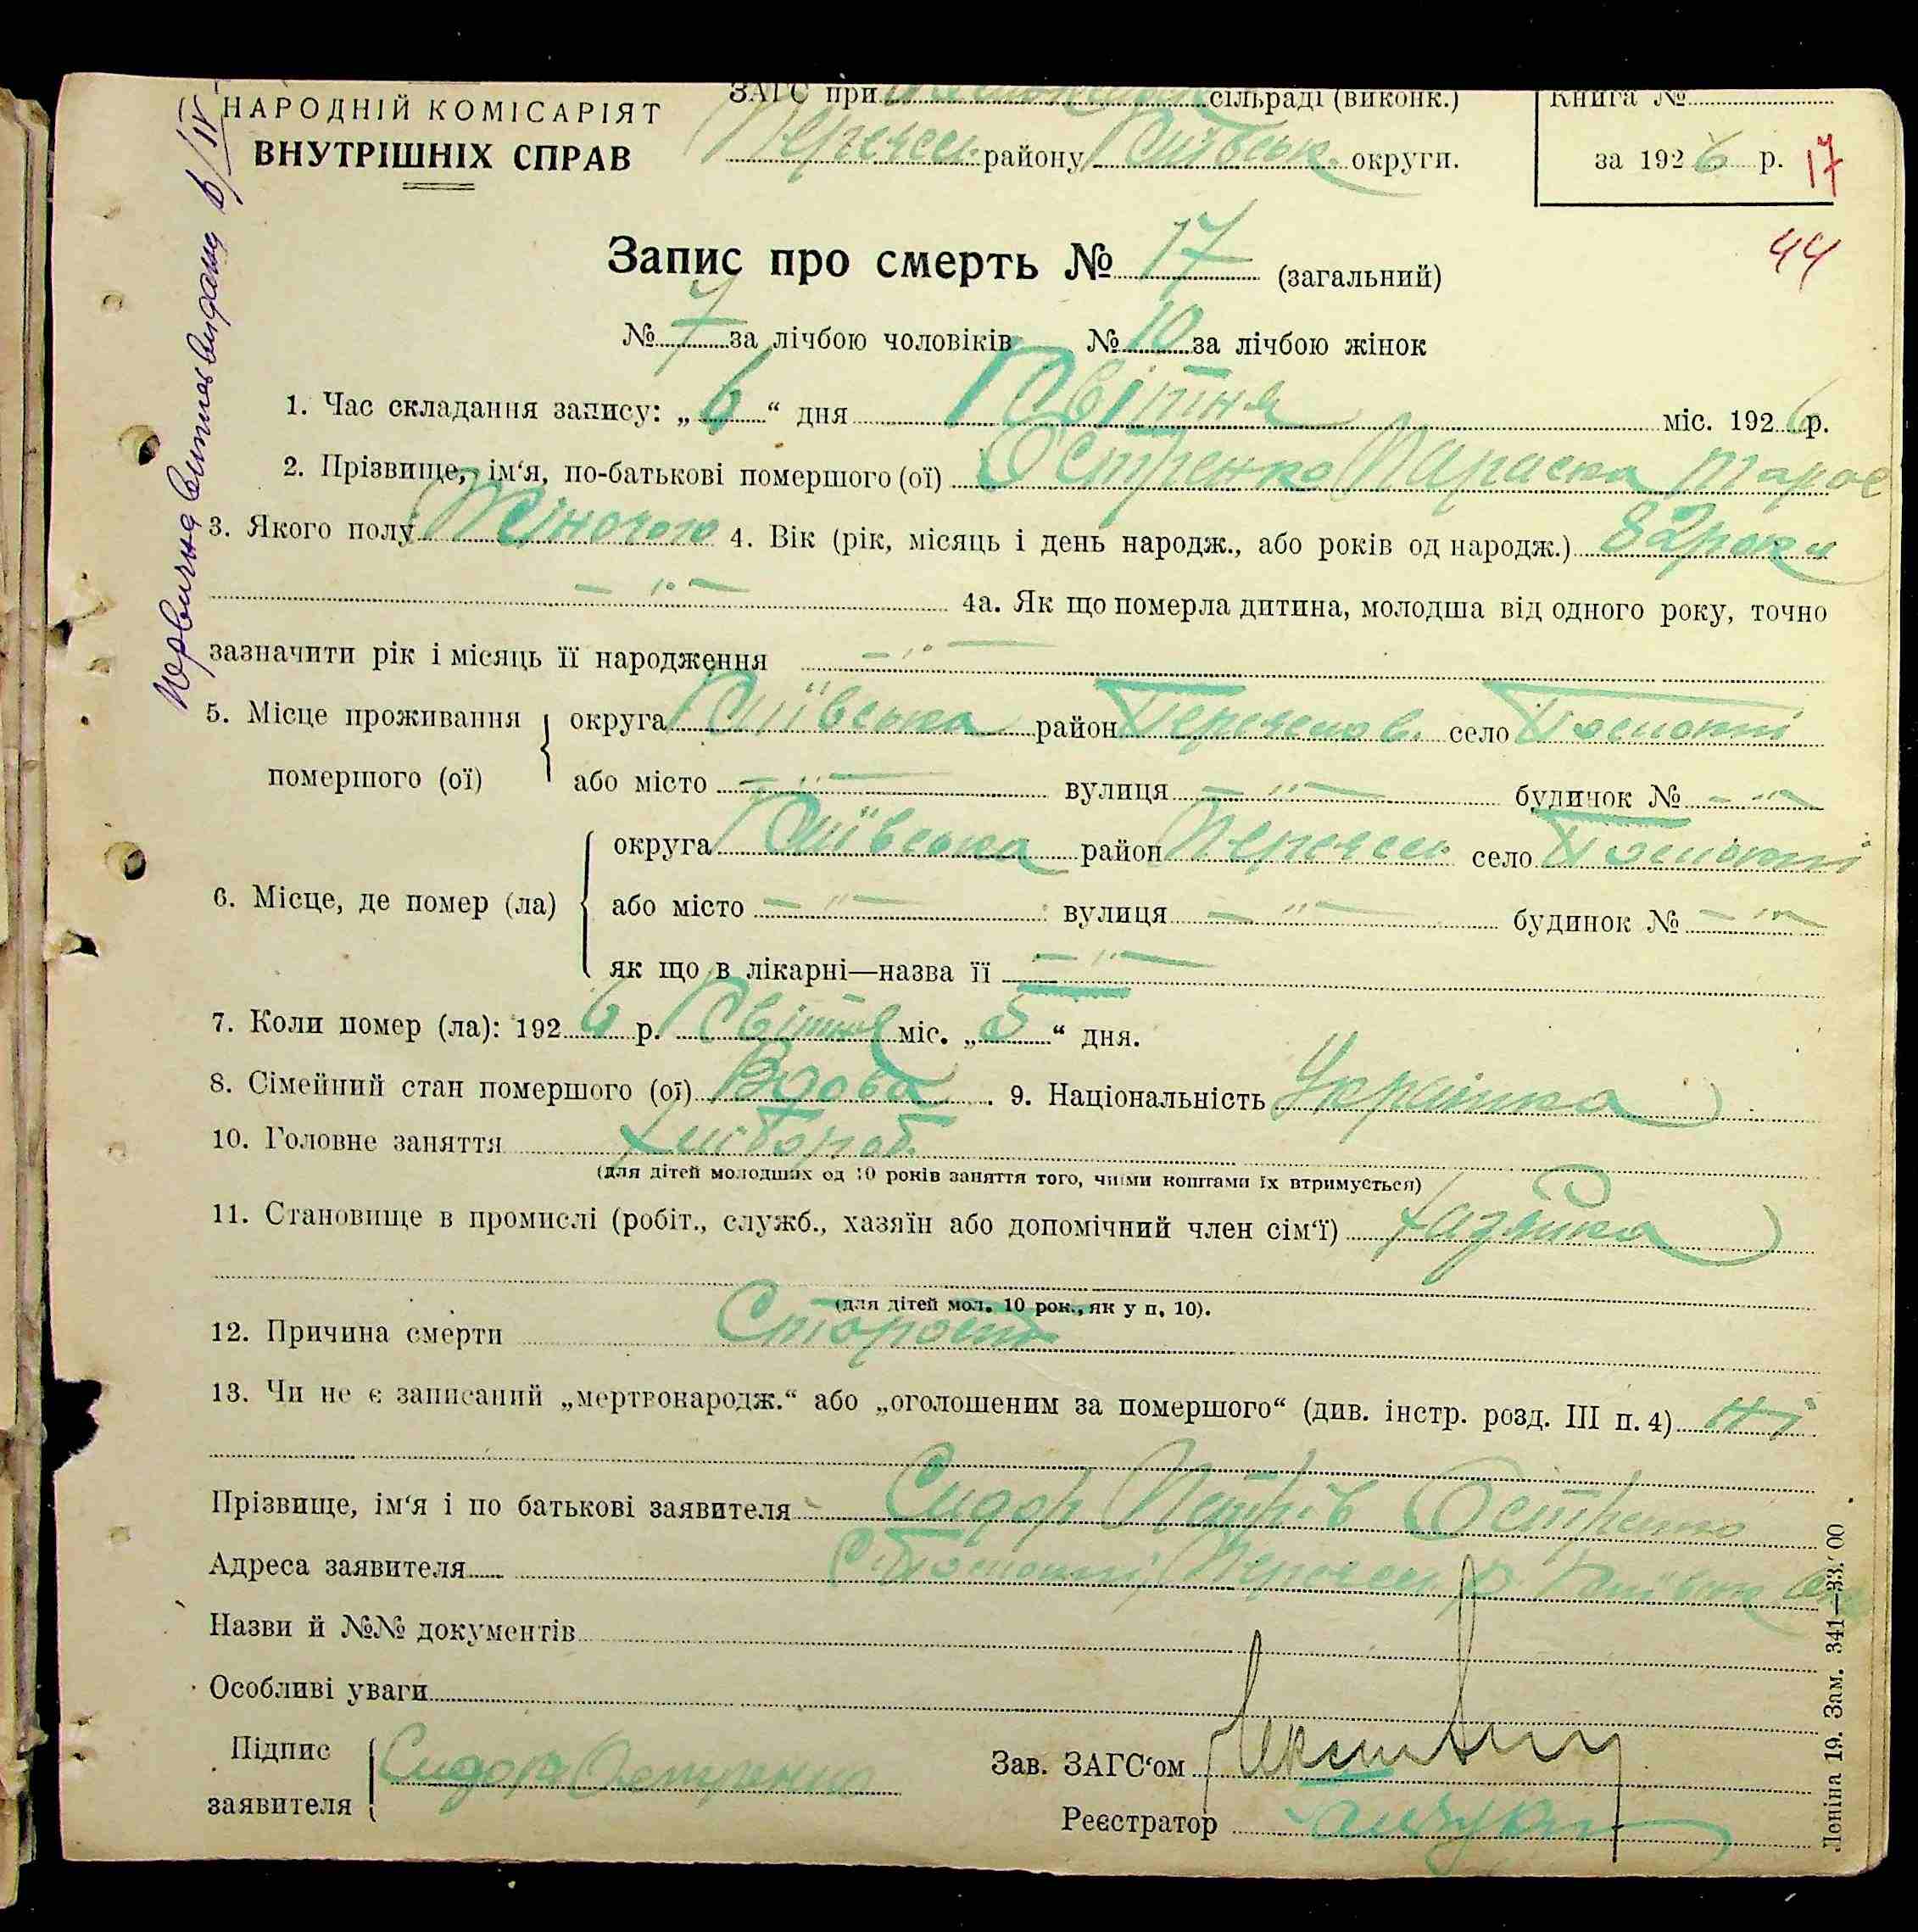 НАРОДНІЙ КОМІСАРІЯТ
ВНУТРІШНІХ СПРАВ
ЗАГС при сільраді (виконк.)
району Київськ. округи.
Книга №
за 1926 р. 17
44
Запис про смерть № 17 (загальний)
№ 7 за лічбою чоловіків № 10 за лічбою жінок
1. Час складання запису: „6“ дня Квітня міс. 1926 р.
2. Прізвище, ім‘я, по-батькові помершого (ої) Остренко Параска Тарас
3. Якого полу Жіночого 4. Вік (рік, місяць і день народж., або років од народж.) 82 роки
— „ — 4а. Як що померла дитина, молодша від одного року, точно
зазначити рік і місяць її народження — „ —
5. Місце проживання помершого (ої) округа Київська район село
або місто — „ — вулиця — „ — будинок № — „ —
6. Місце, де помер (ла) округа Київська район село
або місто — „ — вулиця — „ — будинок № — „ —
як що в лікарні—назва її — „ —
7. Коли помер (ла): 1926 р. Квітня міс. „5“ дня.
8. Сімейний стан помершого (ої) Вдова. 9. Національність Українка
10. Головне заняття Хлібороб.
(для дітей молодших од 10 років заняття того, чиїми коштами їх втримується)
11. Становище в промислі (робіт., служб., хазяїн або допомічний член сім‘ї) Хазяйка
(для дітей мол. 10 рок., як у п. 10).
12. Причина смерти Старость
13. Чи не є записаний „мертвонародж.“ або „оголошеним за помершого“ (див. інстр. розд. III п. 4) Ні
Прізвище, ім‘я і по батькові заявителя Сидор Петрів Остренко
Адреса заявителя
Назви й №№ документів
Особливі уваги
Підпис заявителя Сидор Остренко
Зав. ЗАГС‘ом
Реєстратор
Леніна 19. Зам. 341—33.